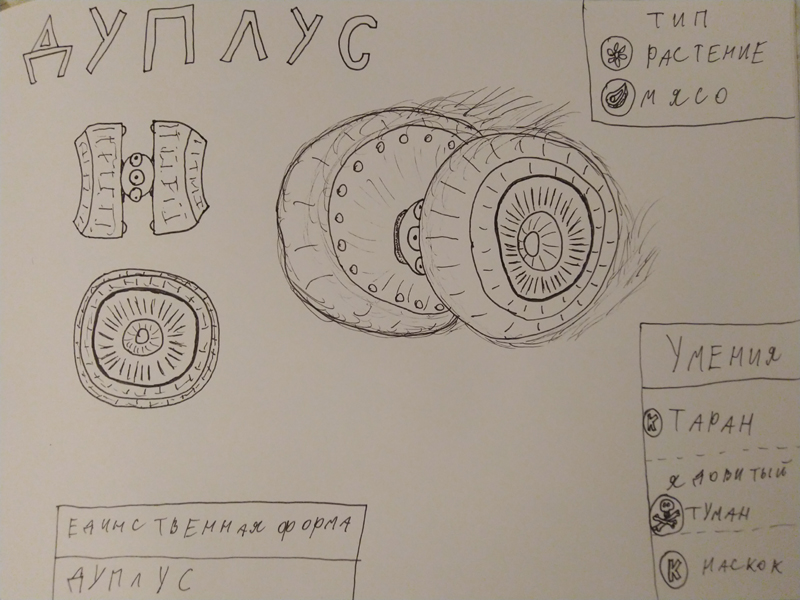 ДУПЛУС
ТИП
РАСТЕНИЕ
МЯСО
УМЕНИЯ
К ТАРАН
ЯДОВИТЫЙ
ТУМАН
К НАСКОК
ЕДИНСТВЕННАЯ ФОРМА
ДУПЛУС